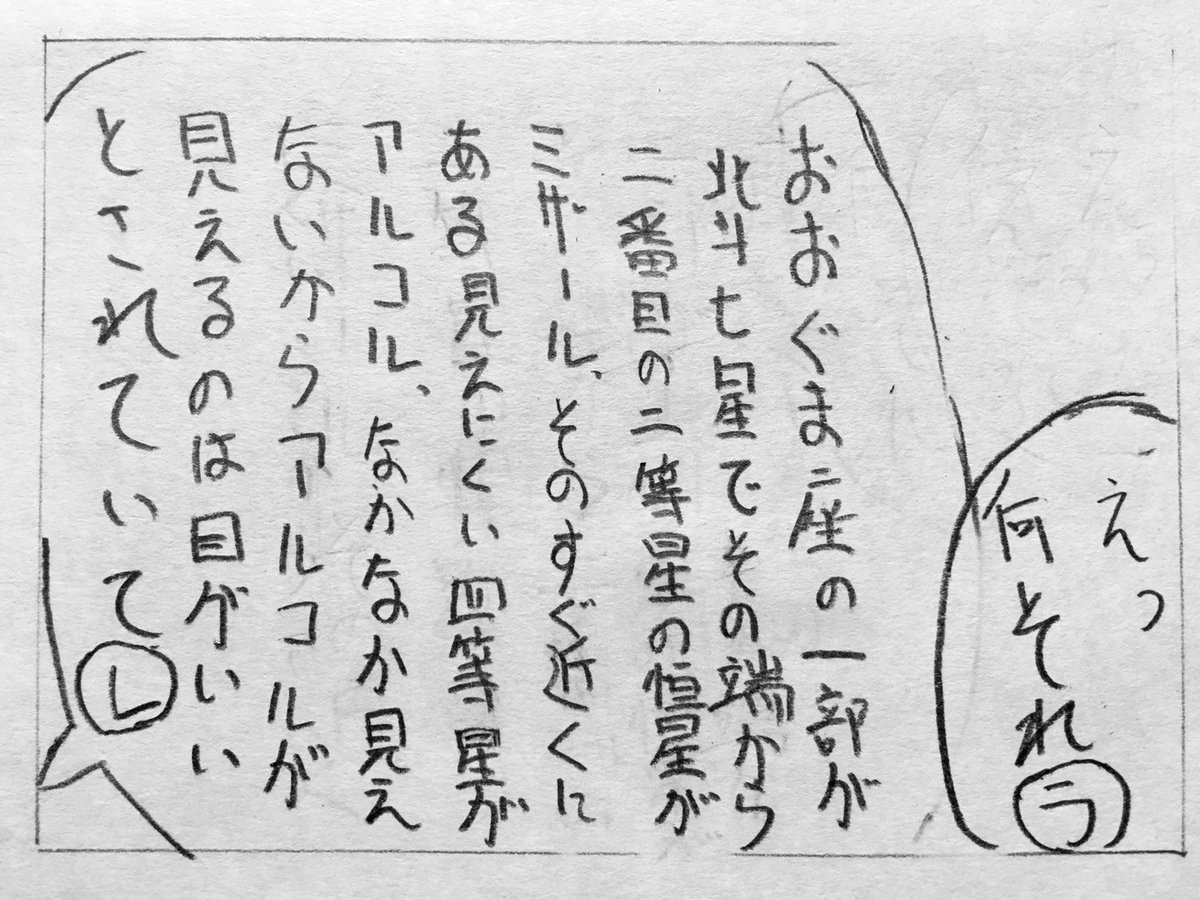 えっ
何それ
ラ
おおぐま座の一部が
北斗七星でその端から
二番目の二等星の恒星が
ミザール、そのすぐ近くに
ある見えにくい四等星が
アルコル、なかなか見え
ないからアルコルが
見えるのは目がいい
とされていて
レ